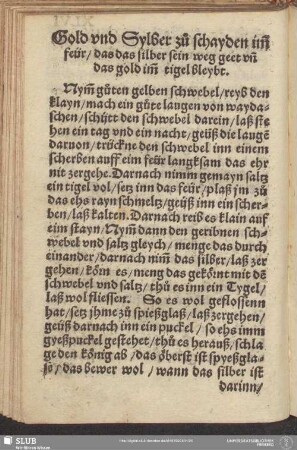 Gold vnd Sylber zů schayden im̃
feür / das das silber sein weg geet vñ
das gold im̃ tigel bleybt.
Nym̃ gůten gelben schwebel / reyb den
klayn / mach ein gůte laugen von wayda-
schen / schüt den schwebel darein / laß ste
hen ein tag vnd ein nacht / geüß die laugẽ
daruon / trückne den schwebel inn einem
scherben auff ein feür langksam das ehr
nit zergehe. Darnach nimm gemayn saltz
ein tigel vol / setz inn das feür / plaß jm zů
das ehs rayn schmeltz / geüß inn ein scher-
ben / laß kalten. Darnach reib es klain auf
eim stayn / Nym̃ dann den geribnen sch-
webel vnd saltz gleych / menge das durch
einander / darnach nim̃ das silber / laß zer
gehen / köm es / meng das gekömt mit dẽ
schwebel vnd saltz / thů es inn ein Tygel /
laß wol fliessen. So es wol geflossenn
hat / setz jhme zů spießglaß / laß zergehen /
geüß darnach inn ein puckel / so ehs imm
gyeßpuckel gestehet / thů es herauß / schla
ge den könig ab / das öberst ist spyeßgla-
se / das bewer wol / wann das silber ist
darinn /
SLUB
Wir führen Wissen.
UNIVERSITÄTSBIBLIOTHEK
FREIBERG